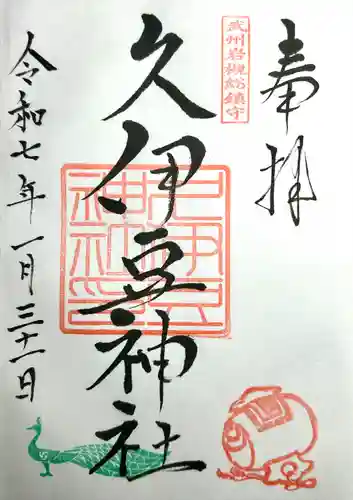 奉拝
武州岩槻総鎮守
久伊豆神社
久伊豆神社印
令和七年一月三十一日